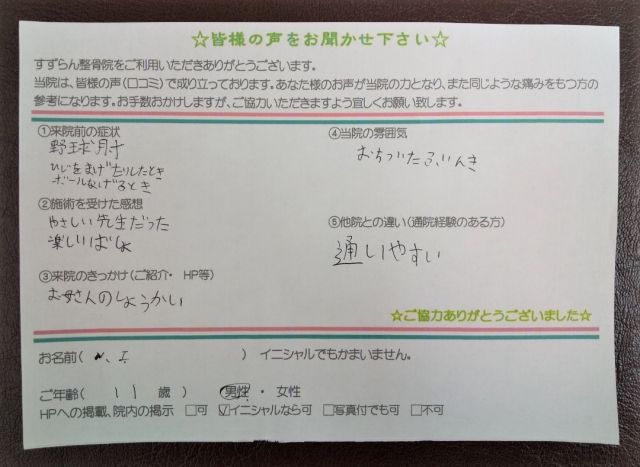 ☆皆様の声をお聞かせ下さい☆
すずらん整骨院をご利用いただきありがとうございます。
当院は、皆様の声(口コミ)で成り立っております。あなた様のお声が当院の力となり、また同じような痛みをもつ方の
参考になります。お手数おかけしますが、ご協力いただきますよう宜しくお願い致します。
①来院前の症状
野球肘
ひじをまげたりしたとき
ボールなげるとき
②施術を受けた感想
やさしい先生だった
楽しいばしょ
③来院のきっかけ(ご紹介・ HP等)
お母さんのしょうかい
④当院の雰囲気
おちついたふいんき
⑤他院との違い(通院経験のある方)
通いやすい
☆ご協力ありがとうございました☆
お名前( N、I ) イニシャルでもかまいません。
ご年齢( 11 歳 ) 男性 ・ 女性
HPへの掲載、院内の掲示 □可 ☑イニシャルなら可 □写真付でも可 □不可